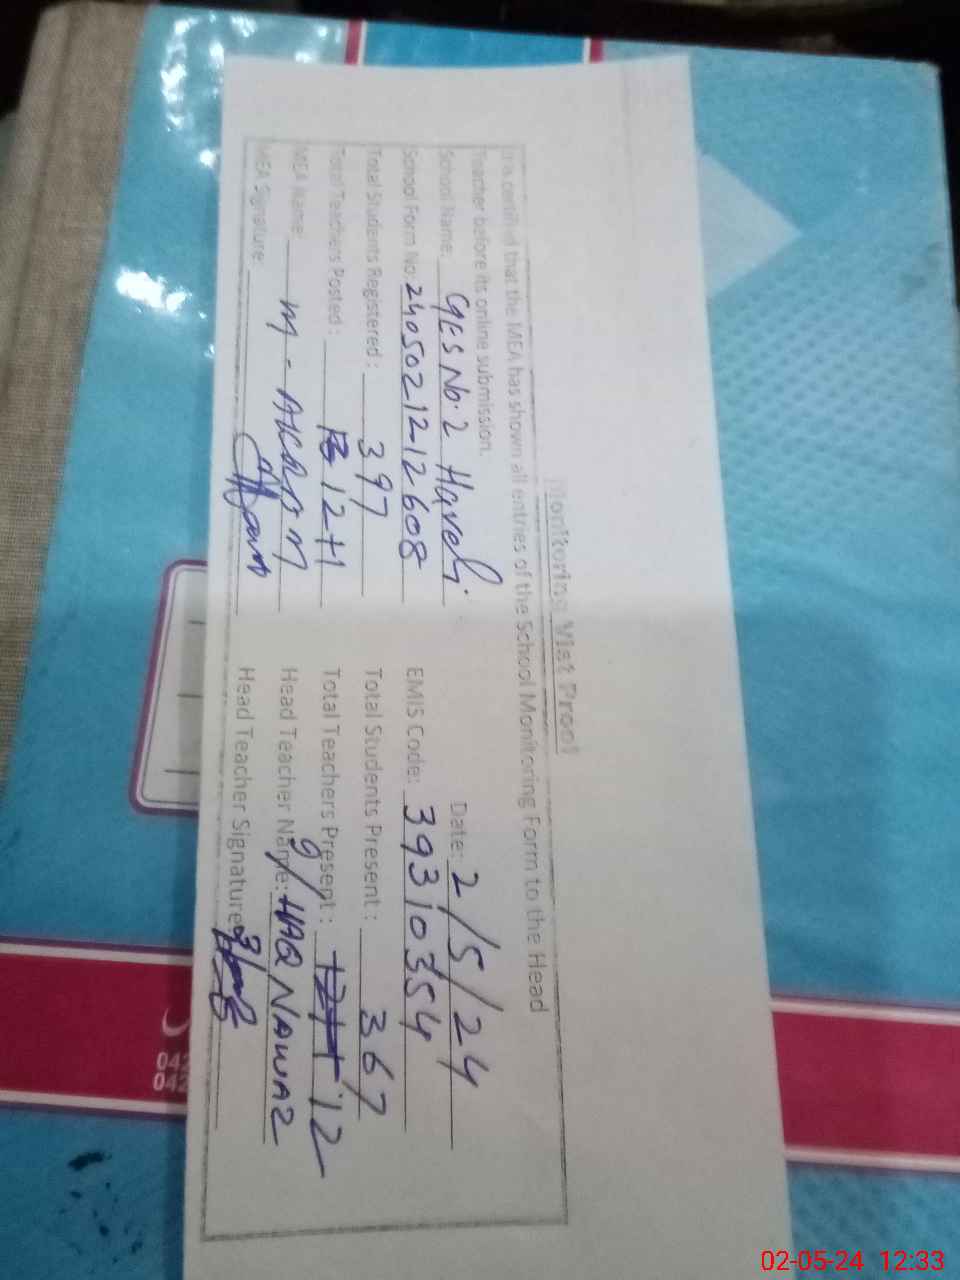 Monitoring Visit Proof
It is certified that the MEA has shown all entries of the School Monitoring Form to the Head
Teacher before its online submission.
Date: 2/5/24
School Name: GES No.2 Haveli
School Form No: 240502121 2608
EMIS Code: 39310354
Total Students Registered: 397
Total Students Present: 367
Total Teachers Posted: 12+1
Total Teachers Present: 12+1 12
MEA Name: M-AKRAM
Head Teacher Name: HAQ NAWAZ
MEA Signature:
Head Teacher Signature
042
042
02-05-24 12:33